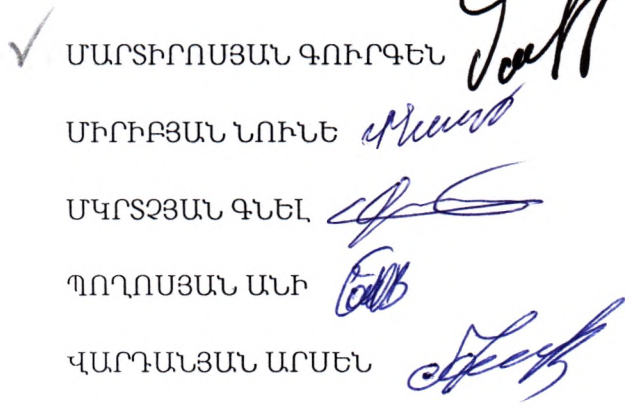 ՄԱՐՏԻՐՈՍՅԱՆ ԳՈՒՐԳԵՆ
ՄԻՐԻԲՅԱՆ ՆՈՒՆԵ
ՄԿՐՏՉՅԱՆ ԳՆԵԼ
ՊՈՂՈՍՅԱՆ ԱՆԻ
ՎԱՐԴԱՆՅԱՆ ԱՐՍԵՆ